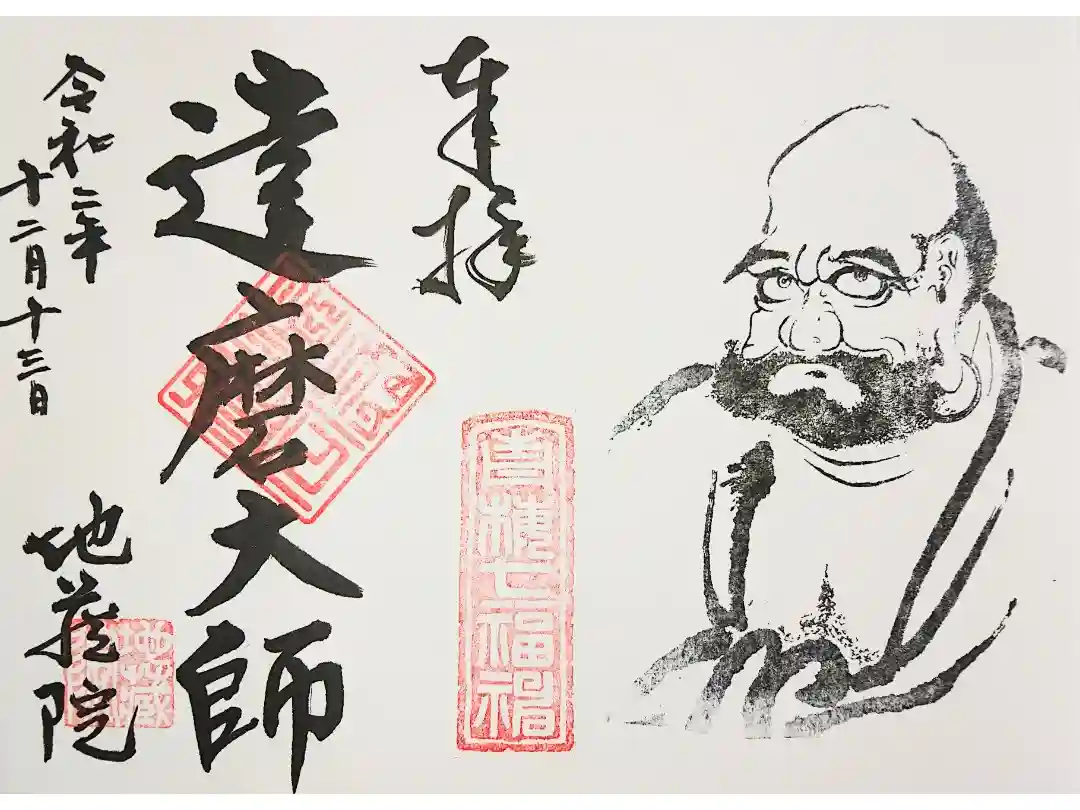 奉拝
七福
達磨大師
令和二年
十二月十三日
地蔵院
地藏